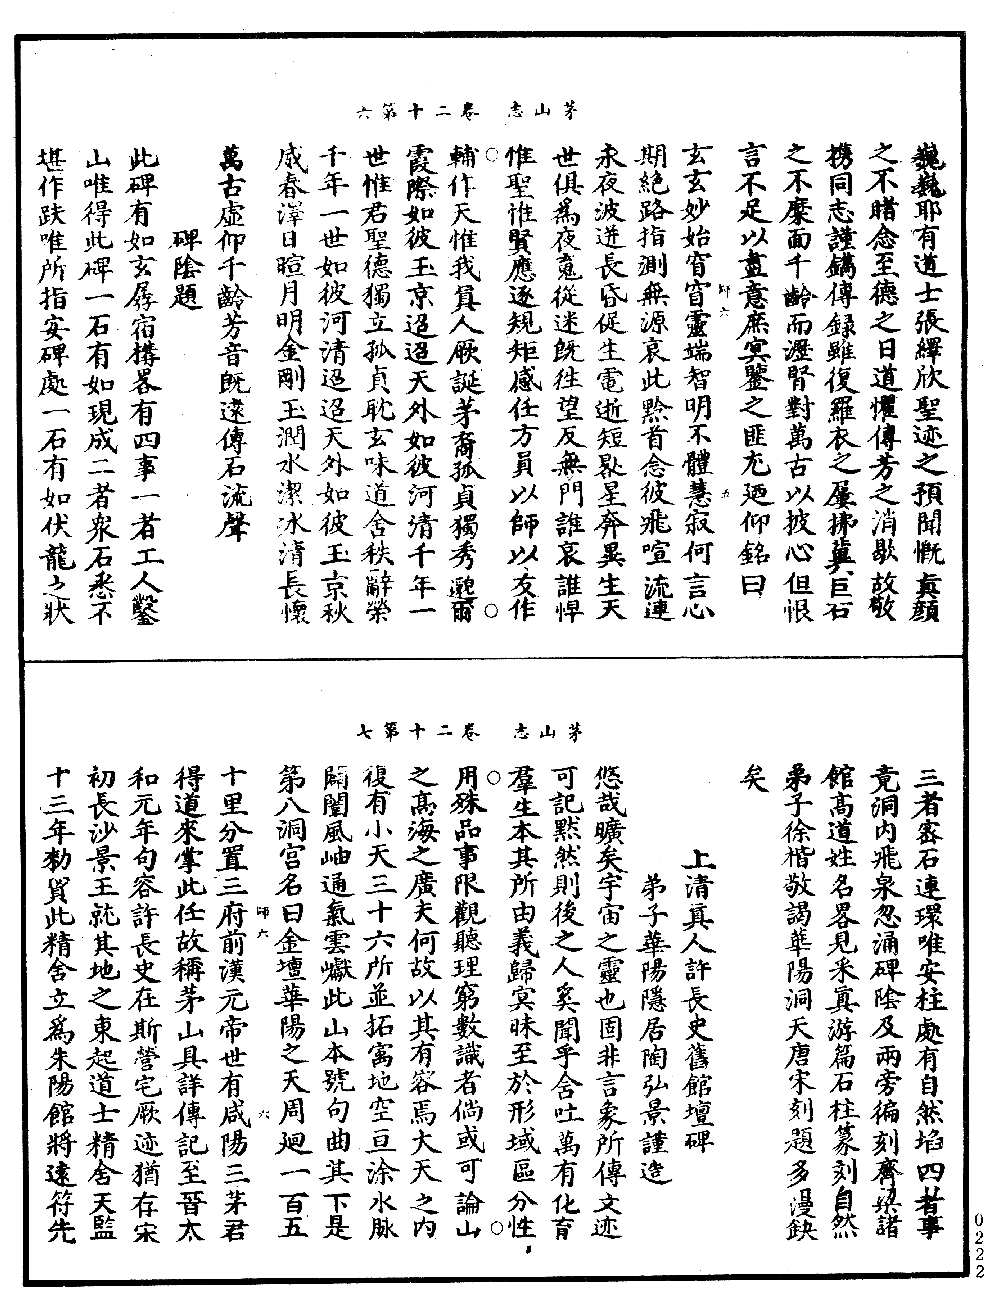 茅山志　卷二十第六
巍巍耶有道士張繹欣聖迹之預聞慨真顔
之不睹念至德之日道懼傳芳之消歇故敬
携同志謹鐫傳録雖復羅衣之屢拂冀巨石
之不糜面千齡而瀝腎對萬古以披心但恨
言不足以盡意庶冥鑒之匪尤廼仰銘曰
玄玄妙始窅窅靈端智明不體慧寂何言心
期絶路指測無源哀此黔首念彼飛喧流連
永夜波迸長昏促生電逝短晷星奔異生天
世俱爲夜寬從迷既徃望反無門誰哀誰悍
惟聖惟賢應逐規矩感任方員以師以友作
輔作天惟我真人厥誕茅裔孤貞獨秀邈爾
霞際如彼玉京迢迢天外如彼河清千年一
世惟君聖德獨立孤貞耽玄味道舍秩辭榮
千年一世如彼河清迢迢天外如彼玉京秋
成春澤日暄月明金剛玉潤水潔冰清長懷
萬古虚仰千齡芳音既逺傳石流聲
碑陰題
此碑有如玄孱宿構畧有四事一者工人鑿
山唯得此碑一石有如現成二者衆石悉不
堪作趺唯所指安碑處一石有如伏龍之狀
師六
五
茅山志　卷二十第七
三者密石連環唯安柱處有自然埳四者事
竟洞内飛泉忽涌碑陰及兩旁徧刻齊梁諸
館高道姓名畧見釆真游篇石柱篆刻自然
弟子徐楷敬謁華陽洞天唐宋刻題多漫缺
矣
上清真人許長史舊館壇碑
弟子華陽隱居陶弘景謹造
悠哉曠矣宇宙之靈也固非言象所傳文迹
可記黙然則後之人奚聞乎含吐萬有化育
羣生本其所由義歸冥昧至於形域區分性
用殊品事限觀聽理窮數識者倘或可論山
之高海之廣夫何故以其有容焉大天之内
復有小天三十六所並拓寓地空亘涂水脉
闢闓風岫通氣雲巘此山本號句曲其下是
第八洞宫名曰金壇華陽之天周廻一百五
十里分置三府前漢元帝世有咸陽三茅君
得道來掌此任故稱茅山具詳傳記至晉太
和元年句容許長史在斯營宅厥迹猶存宋
初長沙景王就其地之東起道士精舍天監
十三年勑貿此精舍立爲朱陽館將遠符先
師六
六
0222